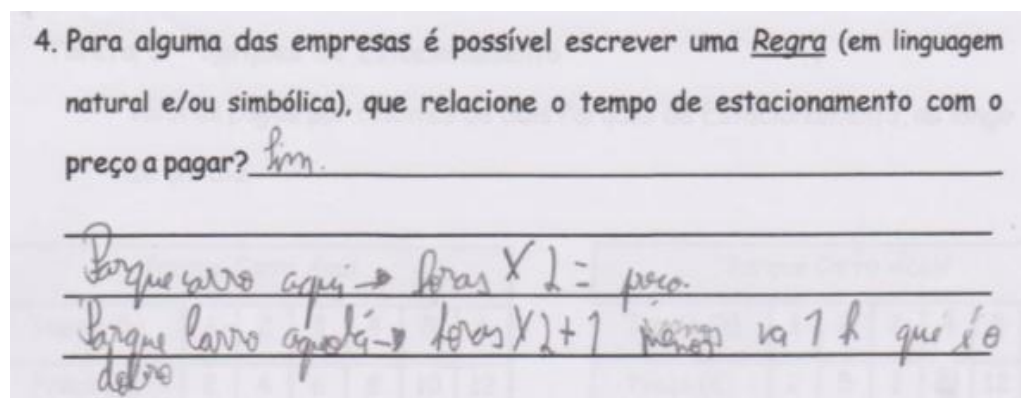 4. Para alguma das empresas é possível escrever uma Regra (em linguagem
natural e/ou simbólica), que relacione o tempo de estacionamento com o
preço a pagar? Sim.
Parque carro aqui → horas X 2 = preço.
Parque carro aquolá → horas X 2 + 1 menos na 1 h que é o
dobro